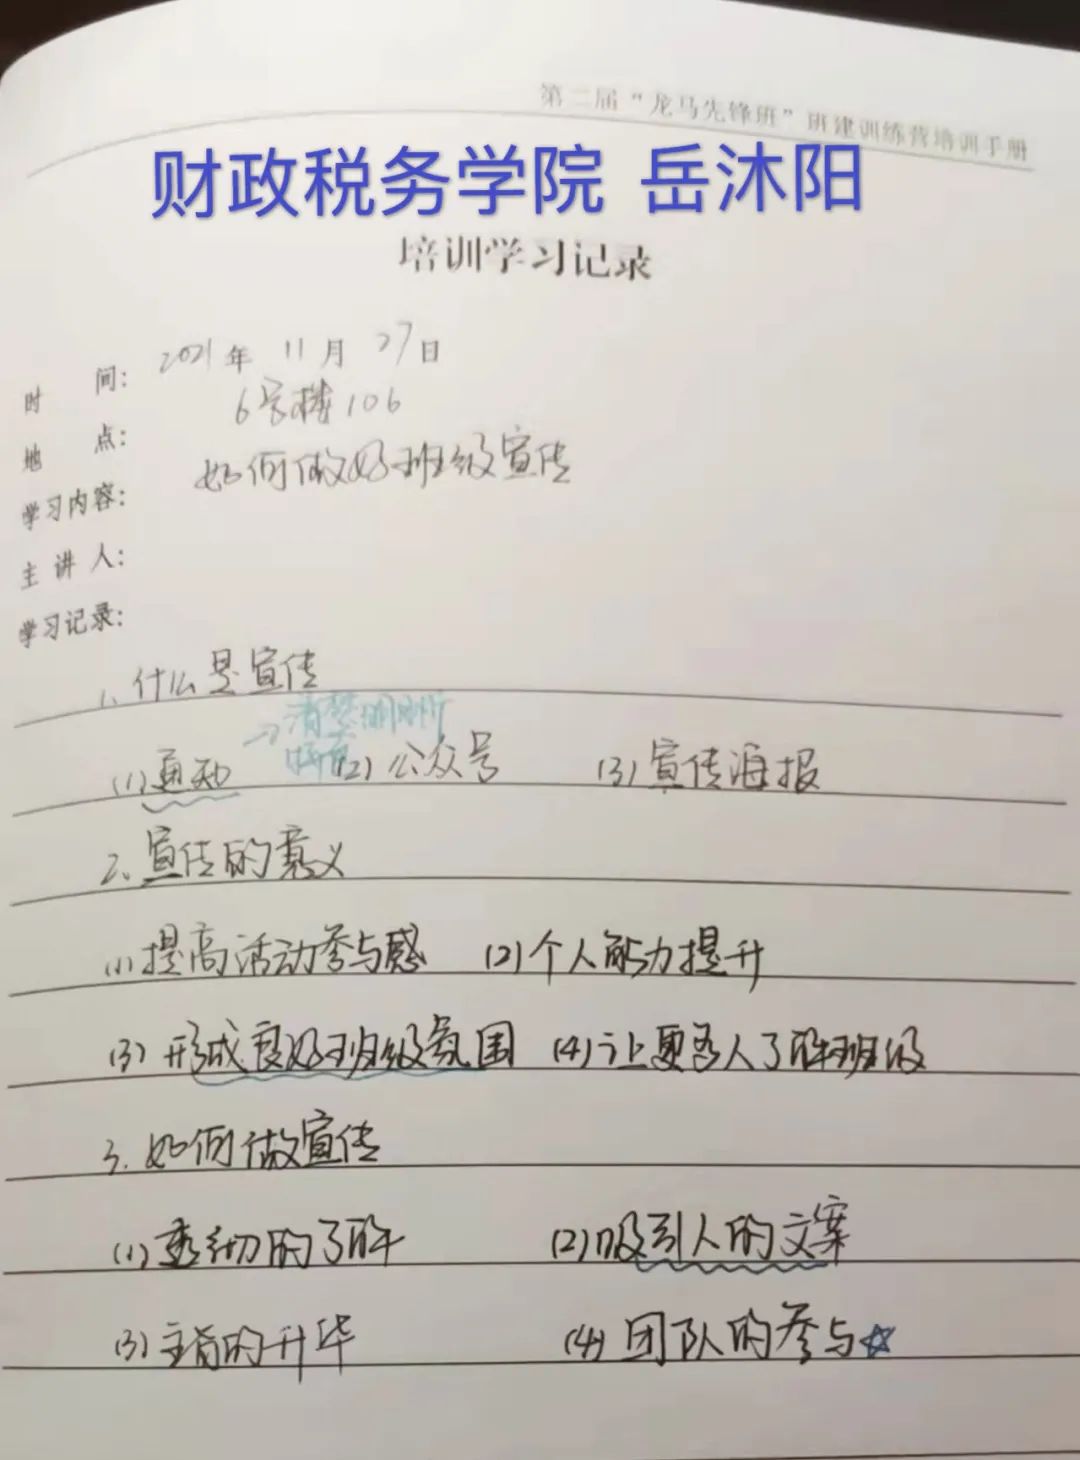 第二届“龙马先锋班”班建训练营培训手册
财政税务学院 岳沐阳
培训学习记录
时 间: 2021年 11月 27日
地 点: 6号楼106
学习内容: 如何做好班级宣传
主 讲 人:
学习记录:
1、什么是宣传
→清楚明晰
(1)通知 (2)公众号 (3)宣传海报
2、宣传的意义
(1)提高活动参与感 (2)个人能力提升
(3)形成良好班级氛围 (4)让更多人了解班级
3.如何做宣传
(1)透彻的了解 (2)吸引人的文案
(3)主旨的升华 (4)团队的参与☆